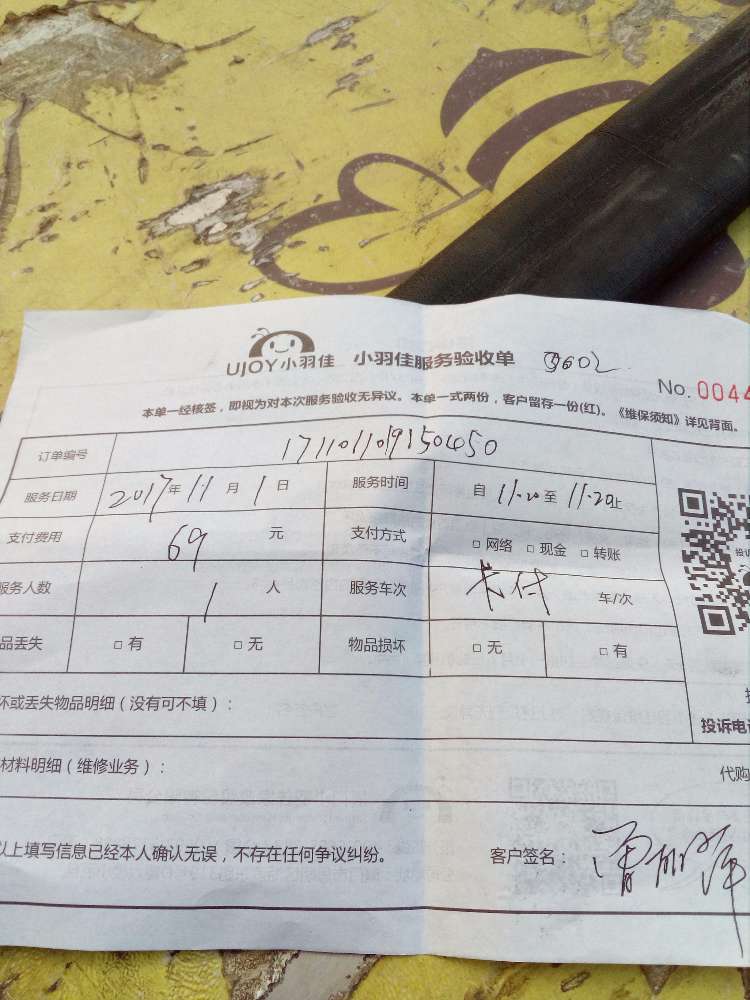 UJOY小羽佳 小羽佳服务验收单 9602
No. 0044
本单一经核签，即视为对本次服务验收无异议。本单一式两份，客户留存一份(红)。《维保须知》详见背面。
订单编号 171101109150450
服务日期 2017年11月1日 服务时间 自11.20至11.20止
支付费用 69元 支付方式 □网络 □现金 □转账
服务人数 1人 服务车次 卡付 车/次
品丢失 □有 □无 物品损坏 □无 □有
坏或丢失物品明细（没有可不填）：
投诉电话
材料明细（维修业务）：
代购
以上填写信息已经本人确认无误，不存在任何争议纠纷。 客户签名：